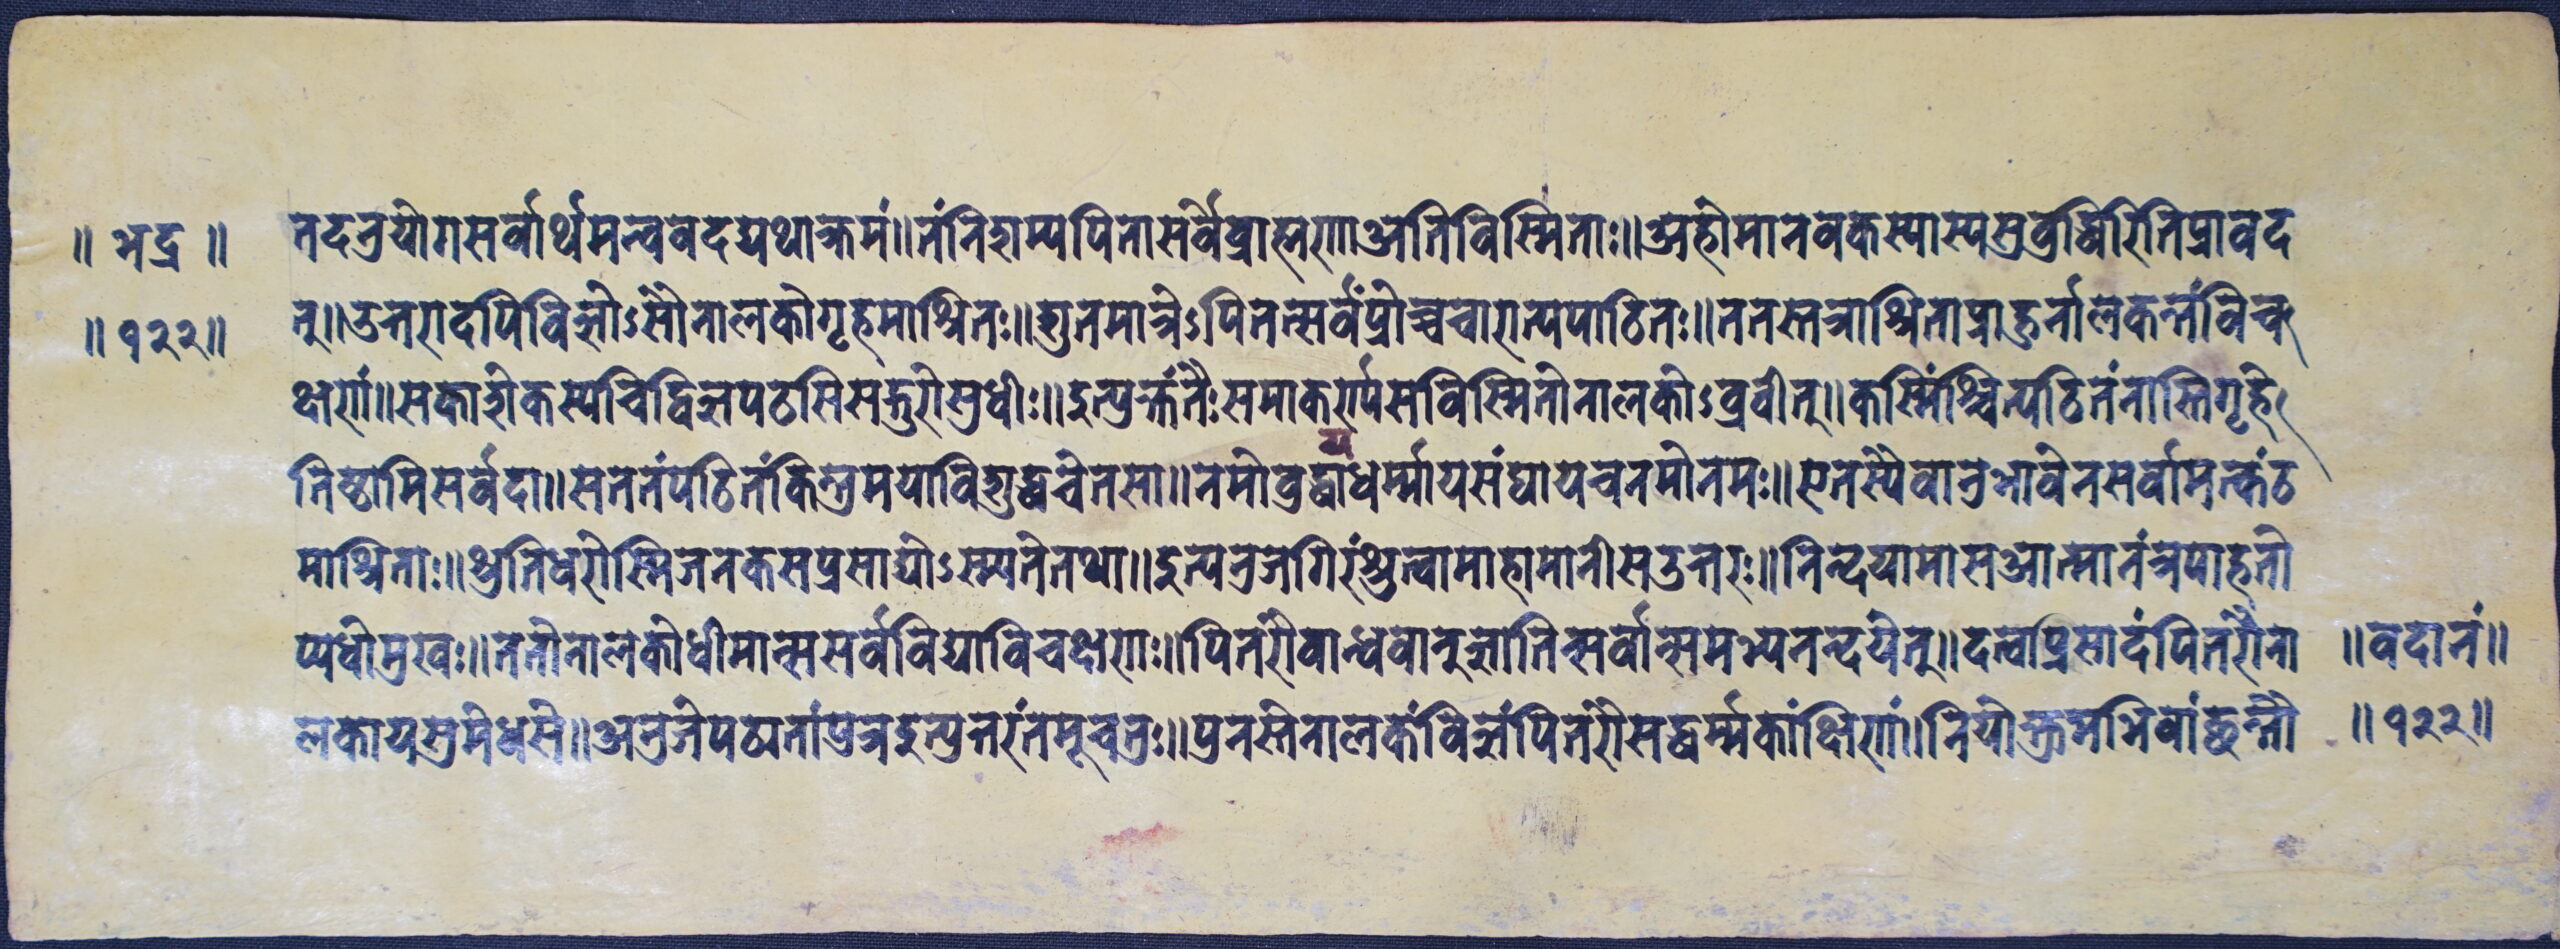 ॥ भद्र ॥
॥ १२२॥
तदनुयोगसर्वार्थमन्ववदद्यथाक्रमं॥तंनिशम्यपितासर्वेब्राह्मणाअतिविस्मिताः॥अहोमानवकस्यास्यसुबुद्धिरितिप्रावद
त्॥उत्तरादपिविज्ञोऽसौनालकोगृहमाश्रितः॥श्रुतमात्रेऽपितत्सर्वंप्रोच्चचारान्यपाठितः॥ततस्तत्राश्रिताप्राहुर्नालकन्तंविच
क्षणं॥सकाशेकस्यचिद्विज्ञपठसिसद्गुरोसुधीः॥इत्युक्तंतैःसमाकर्ण्यसविस्मितोनालकोऽब्रवीत्॥कस्मिंश्चित्पठितंनास्तिगृहे
तिष्ठामिसर्वदा॥सततंपठितंकिन्तुमयाविशुद्धचेतसा॥नमोबुद्धायधर्म्मायसंघायचनमोनमः॥एतस्यैवानुभावेनसर्वामत्कंठ
माश्रिताः॥श्रुतिधरोस्मिजनकसप्रसाद्योऽस्म्यतेतथा॥इत्यनुजगिरंश्रुत्वामाहामानीसउत्तरः॥निन्दयामासआत्मानंत्रपाहतो
प्यधोमुखः॥ततोनालकोधीमान्ससर्वविद्याविचक्षणः॥पितरौबान्धवानुज्ञातिन्सर्वान्समभ्यनन्दयेत्॥दत्वाप्रसादंपितरौना
लकायसुमेधसे॥अनुजेपठ्यतांपुत्रइत्युत्तरंतमूचतुः॥पुनस्तेनालकंविज्ञंपितरौसद्धर्म्मकांक्षिणं॥नियोक्तुमभिवांछन्तौ
॥वदानं॥
॥१२२॥